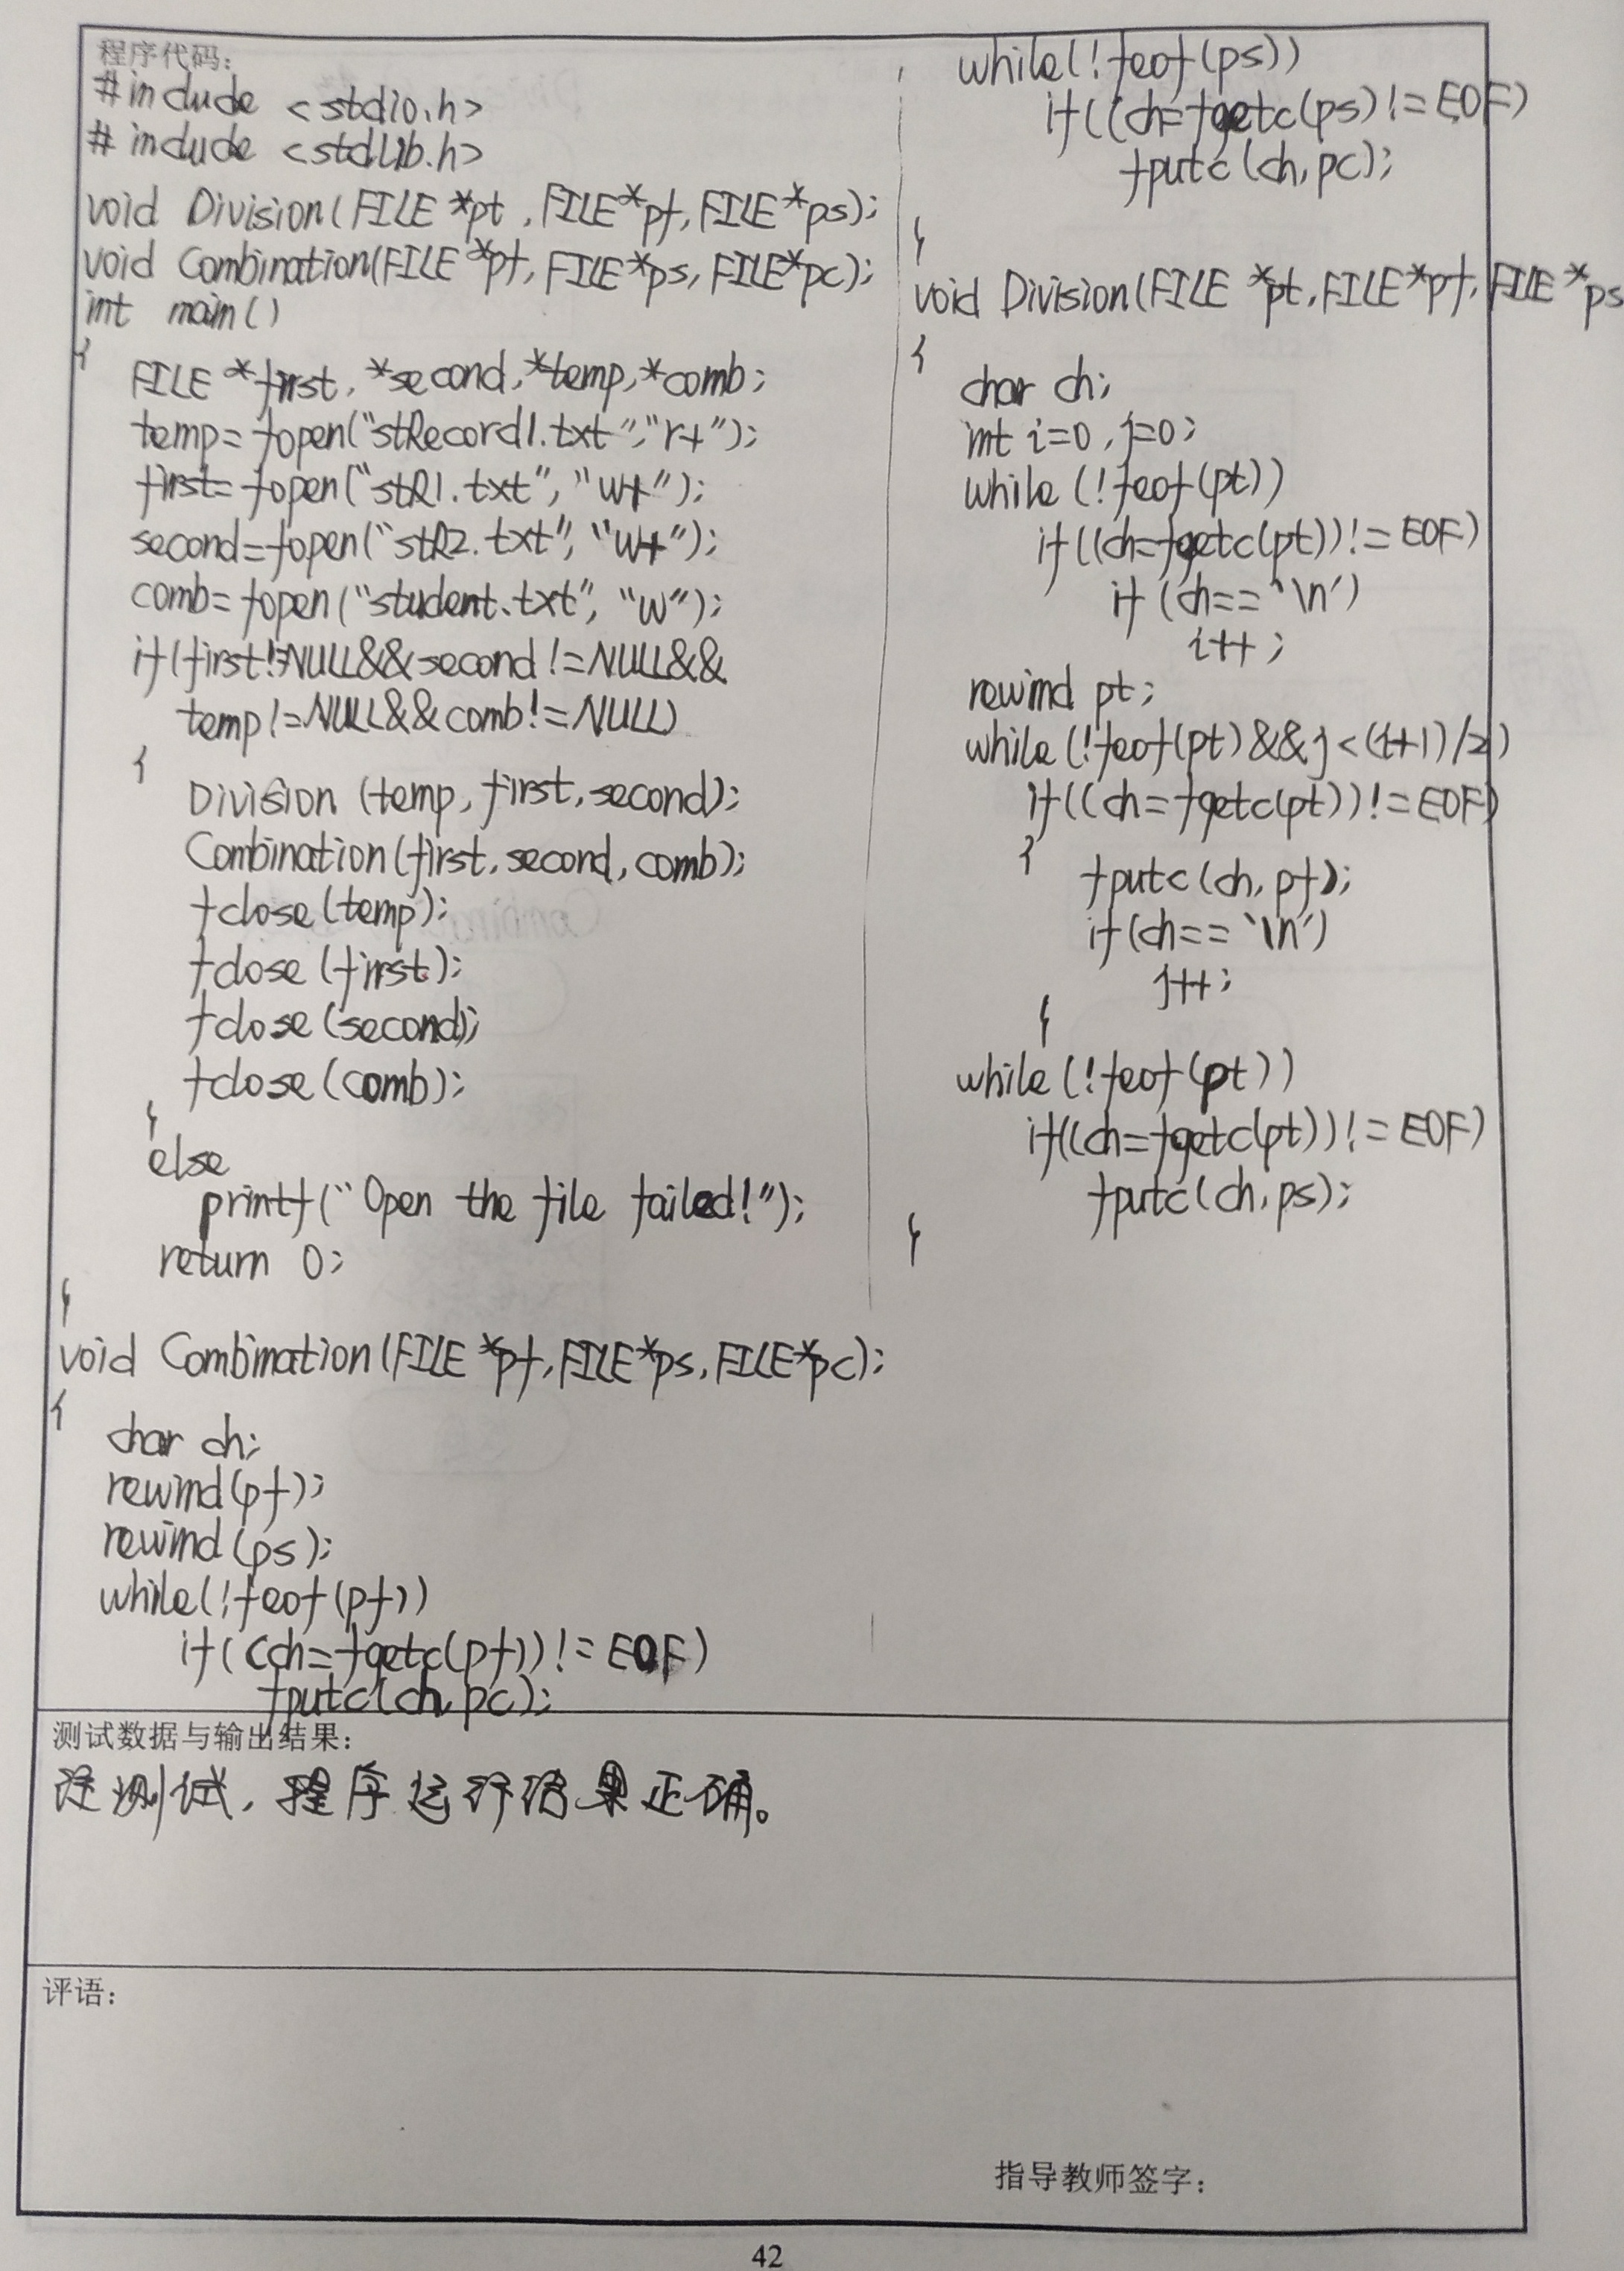 程序代码:
#include <stdio.h>
#include <stdlib.h>
void Division(FILE *pt, FILE*pf, FILE*ps);
void Combination(FILE *pf, FILE*ps, FILE*pc);
int main()
{
FILE *first, *second, *temp, *comb;
temp=fopen("stRecord1.txt","r+");
first=fopen("stR1.txt", "w+");
second=fopen("stR2.txt", "w+");
comb=fopen("student.txt", "w");
if(first!=NULL&&second!=NULL&&
temp!=NULL&&comb!=NULL)
{
Division (temp, first, second);
Combination(first, second, comb);
fclose(temp);
fclose(first);
fclose(second);
fclose(comb);
}
else
printf("Open the file failed!");
return 0;
}
void Combination(FILE *pf, FILE*ps, FILE*pc);
{
char ch;
rewind(pf);
rewind(ps);
while(!feof(pf))
if((ch=fgetc(pf))!=EOF)
fputc(ch, pc);
while(!feof(ps))
if((ch=fgetc(ps)!=EOF)
fputc(ch, pc);
}
void Division(FILE *pt, FILE*pf, FILE*ps
{
char ch;
int i=0, j=0;
while (!feof(pt))
if((ch=fgetc(pt))!=EOF)
if (ch=='\n')
i++;
rewind pt;
while(!feof(pt)&&j<(i+1)/2)
if((ch=fgetc(pt))!=EOF)
{
fputc(ch, pf);
if(ch=='\n')
j++;
}
while(!feof(pt))
if((ch=fgetc(pt))!=EOF)
fputc(ch, ps);
}
测试数据与输出结果:
经测试，程序运行结果正确。
评语:
指导教师签字:
42